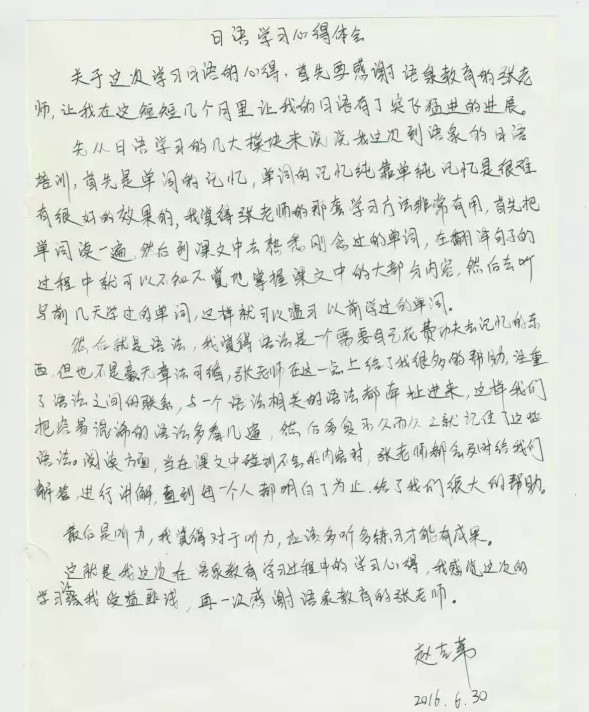 日语学习心得体会
关于这次学习日语的心得，首先要感谢语泉教育的张老
师，让我在这短短几个月里让我的日语有了突飞猛进的进展。
先从日语学习的几大模块来说说我这次到语泉的日语
培训，首先是单词的记忆，单词的记忆纯靠单纯记忆是很难
有很好的效果的，我觉得张老师的那套学习方法非常有用，首先把
单词读一遍，然后到课文中去熟悉刚念过的单词，在翻译句子的
过程中就可以不知不觉地掌握课文中的大部分内容，然后去听
写前几天学过的单词，这样就可以温习以前学过的单词。
然后就是语法，我觉得语法是一个需要自己花费功夫去记忆的东
西，但也不是毫无章法可循，张老师在这一点上给了我很多的帮助，注重
了语法之间的联系，与一个语法相关的语法都牵扯进来，这样我们
把容易混淆的语法多看几遍，然后多复习久而久之就记住了这些
语法。阅读方面，当在课文中碰到不会的内容时，张老师都会及时给我们
解答，进行讲解，直到每一个人都明白了为止，给了我们很大的帮助。
最后是听力，我觉得对于听力，应该多听多练习才能有成果。
这就是我这次在语泉教育学习过程中的学习心得，我感觉这次的
学习让我受益匪浅，再一次感谢语泉教育的张老师。
赵吉
2016.6.30